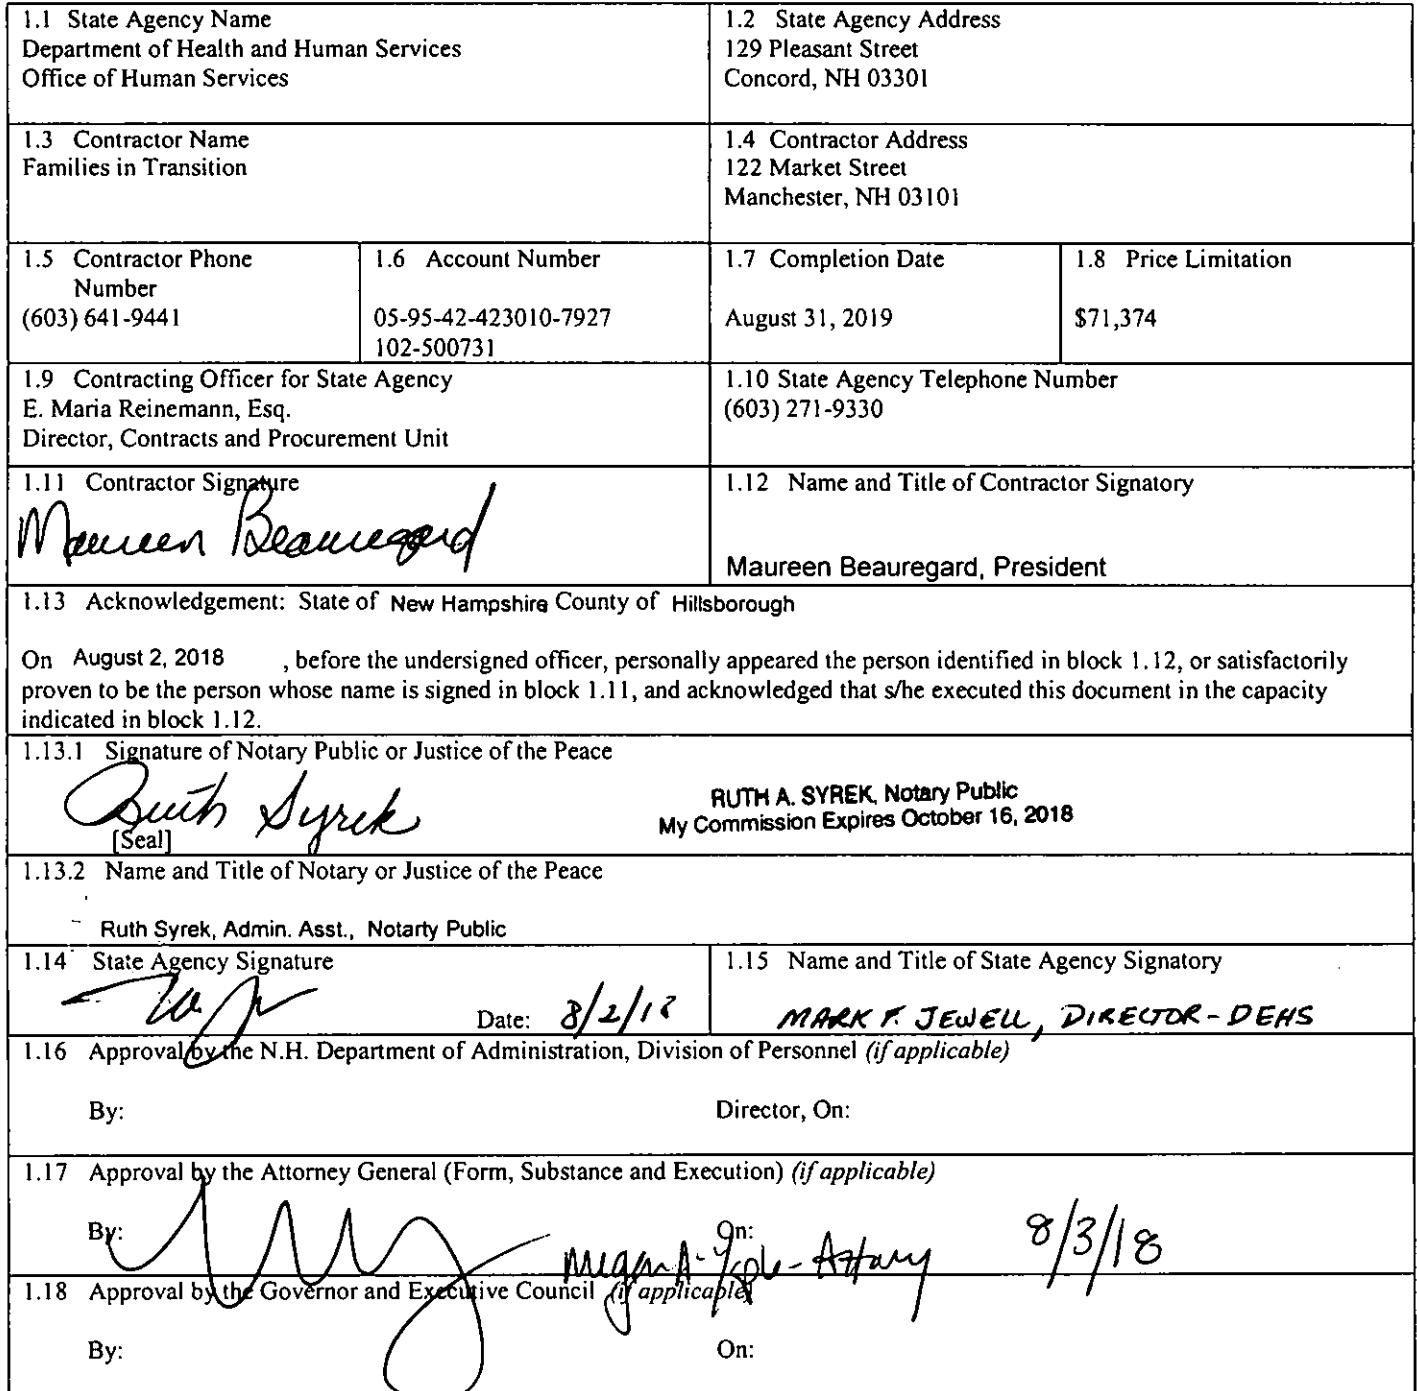 1.1 State Agency Name
Department of Health and Human Services
Office of Human Services
1.2 State Agency Address
129 Pleasant Street
Concord, NH 03301
1.3 Contractor Name
Families in Transition
1.4 Contractor Address
122 Market Street
Manchester, NH 03101
1.5 Contractor Phone
Number
(603) 641-9441
1.6 Account Number
05-95-42-423010-7927
102-500731
1.7 Completion Date
August 31, 2019
1.8 Price Limitation
$71,374
1.9 Contracting Officer for State Agency
E. Maria Reinemann, Esq.
Director, Contracts and Procurement Unit
1.10 State Agency Telephone Number
(603) 271-9330
1.11 Contractor Signature
Maureen Beauregard
1.12 Name and Title of Contractor Signatory
Maureen Beauregard, President
1.13 Acknowledgement: State of New Hampshire County of Hillsborough
On August 2, 2018 , before the undersigned officer, personally appeared the person identified in block 1.12, or satisfactorily
proven to be the person whose name is signed in block 1.11, and acknowledged that s/he executed this document in the capacity
indicated in block 1.12.
1.13.1 Signature of Notary Public or Justice of the Peace
Ruth Syrek
[Seal]
RUTH A. SYREK, Notary Public
My Commission Expires October 16, 2018
1.13.2 Name and Title of Notary or Justice of the Peace
Ruth Syrek, Admin. Asst., Notarty Public
1.14 State Agency Signature
Date: 8/2/18
1.15 Name and Title of State Agency Signatory
MARK F. JEWELL, DIRECTOR - DEHS
1.16 Approval by the N.H. Department of Administration, Division of Personnel (if applicable)
By: Director, On:
1.17 Approval by the Attorney General (Form, Substance and Execution) (if applicable)
By: On: 8/3/18
Megan A.
1.18 Approval by the Governor and Executive Council (if applicable)
By: On: